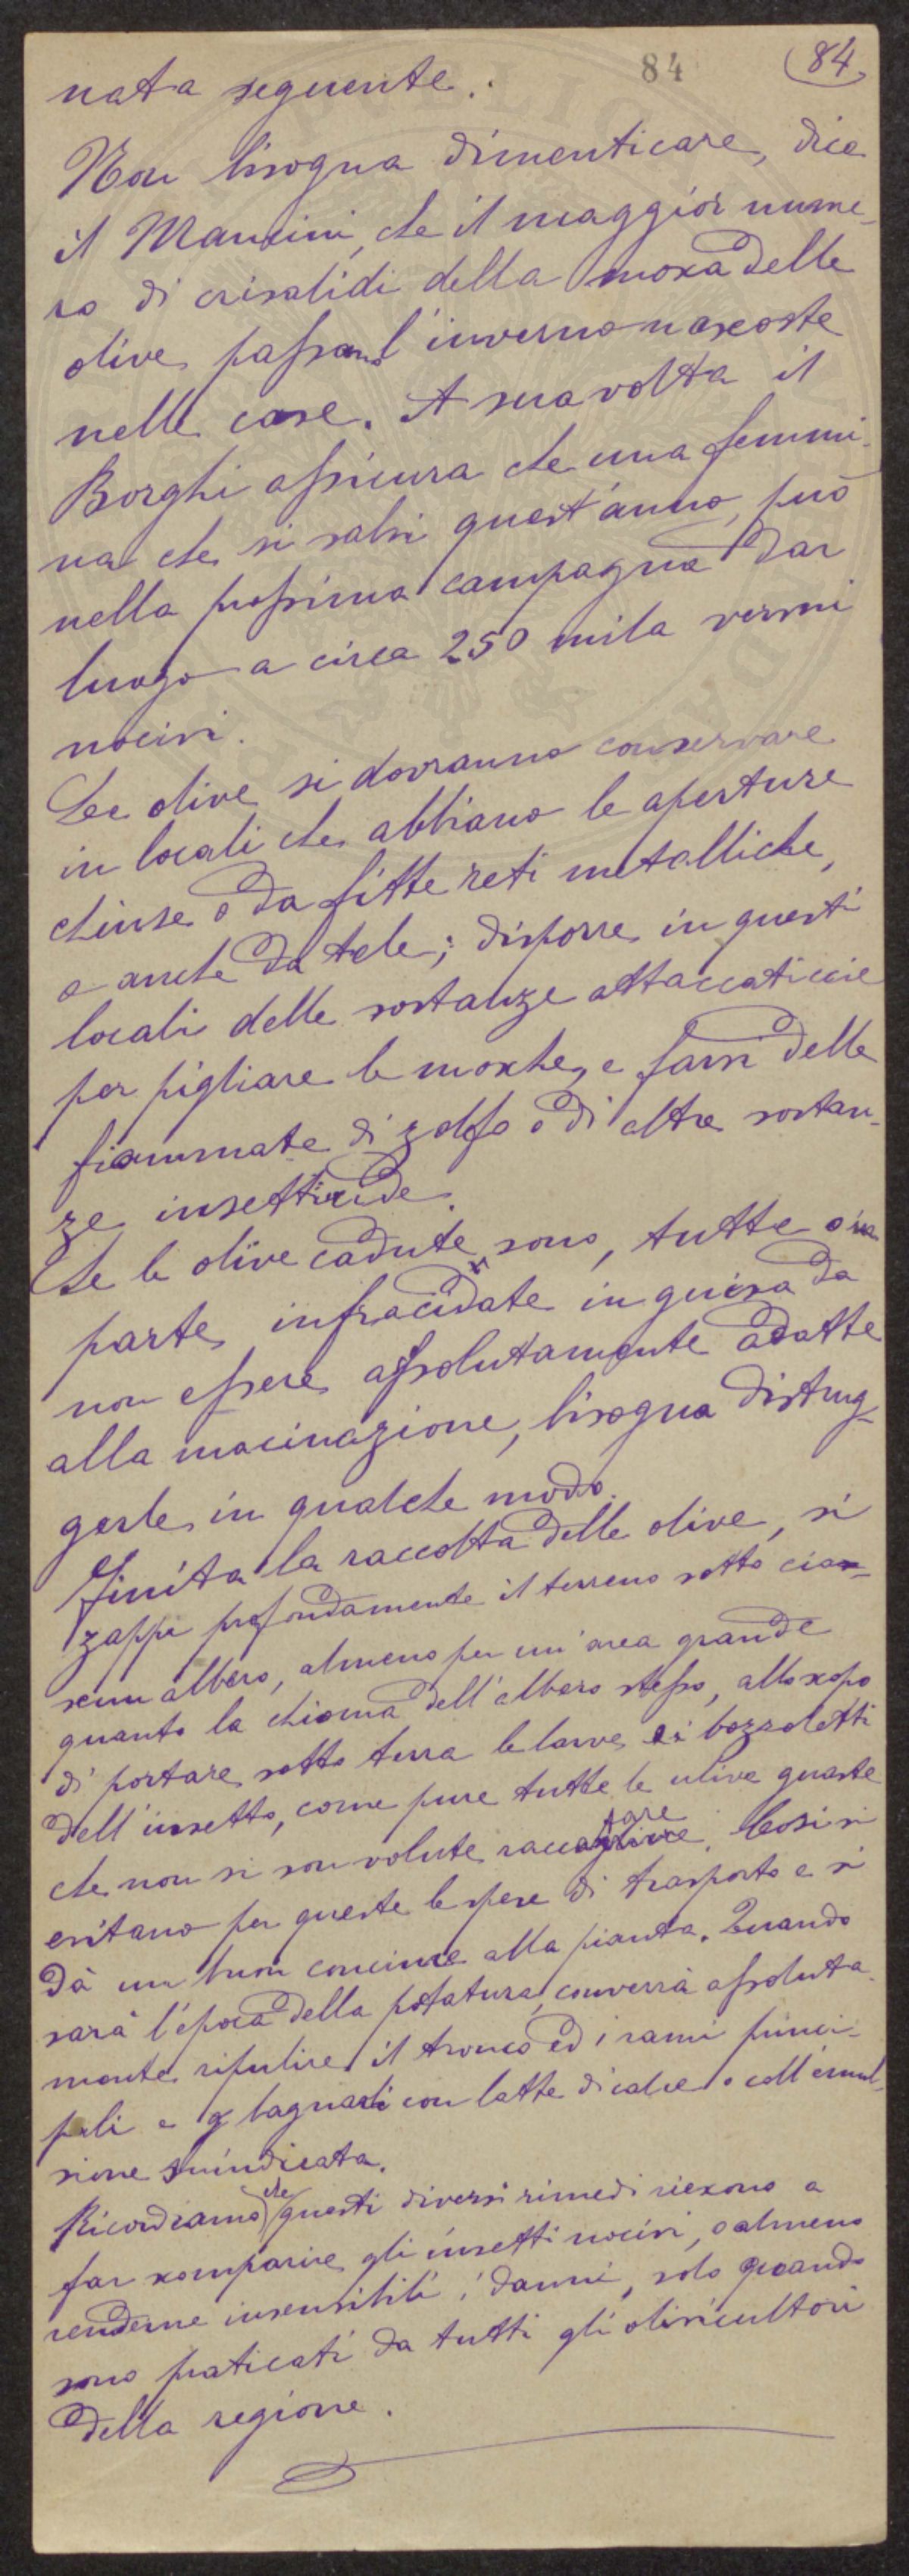 84 (84
nata seguente.
Non bisogna dimenticare, dice
il Mancini, che il maggior nume-
ro di crisalidi della mosca delle
olive passano l'inverno nascoste
nelle case. A sua volta il
Borghi assicura che una femmi-
na che si salvi quest'anno, può
nella prossima campagna dar
luogo a circa 250 mila vermi
nocivi.
Le olive si dovranno conservare
in locali che abbiano le aperture
chiuse o da fitte reti metalliche,
o anche da tele; disporre in questi
locali delle sostanze attaccaticcie
per pigliare le mosche, e farvi delle
fiammate di zolfo o di altre sostan-
ze insetticide.
Se le olive cadute sono, tutte o in
parte, infracidate in guisa da
non essere assolutamente adatte
alla macinazione, bisogna distrug-
gerle in qualche modo.
Finita la raccolta delle olive, si
zappi profondamente il terreno sotto cia-
scun albero, almeno per un'area grande
quanto la chioma dell'albero stesso, allo scopo
di portare sotto terra le larve ei bozzoletti
dell'insetto, come pure tutte le ulive guaste
che non si son volute raccattare. Così si
evitano per queste le spese di trasporto e si
dà un buon concime alla pianta. Quando
sarà l'epoca della potatura, converrà assoluta-
mente ripulire il tronco ed i rami princi-
pali e bagnarli con latte di calce o coll'emul-
sione suindicata.
Ricordiamo che questi diversi rimedi riescono a
far scomparire gli insetti nocivi, o almeno
renderne insensibili i danni, solo quando
sono praticati da tutti gli olivicultori
della regione.